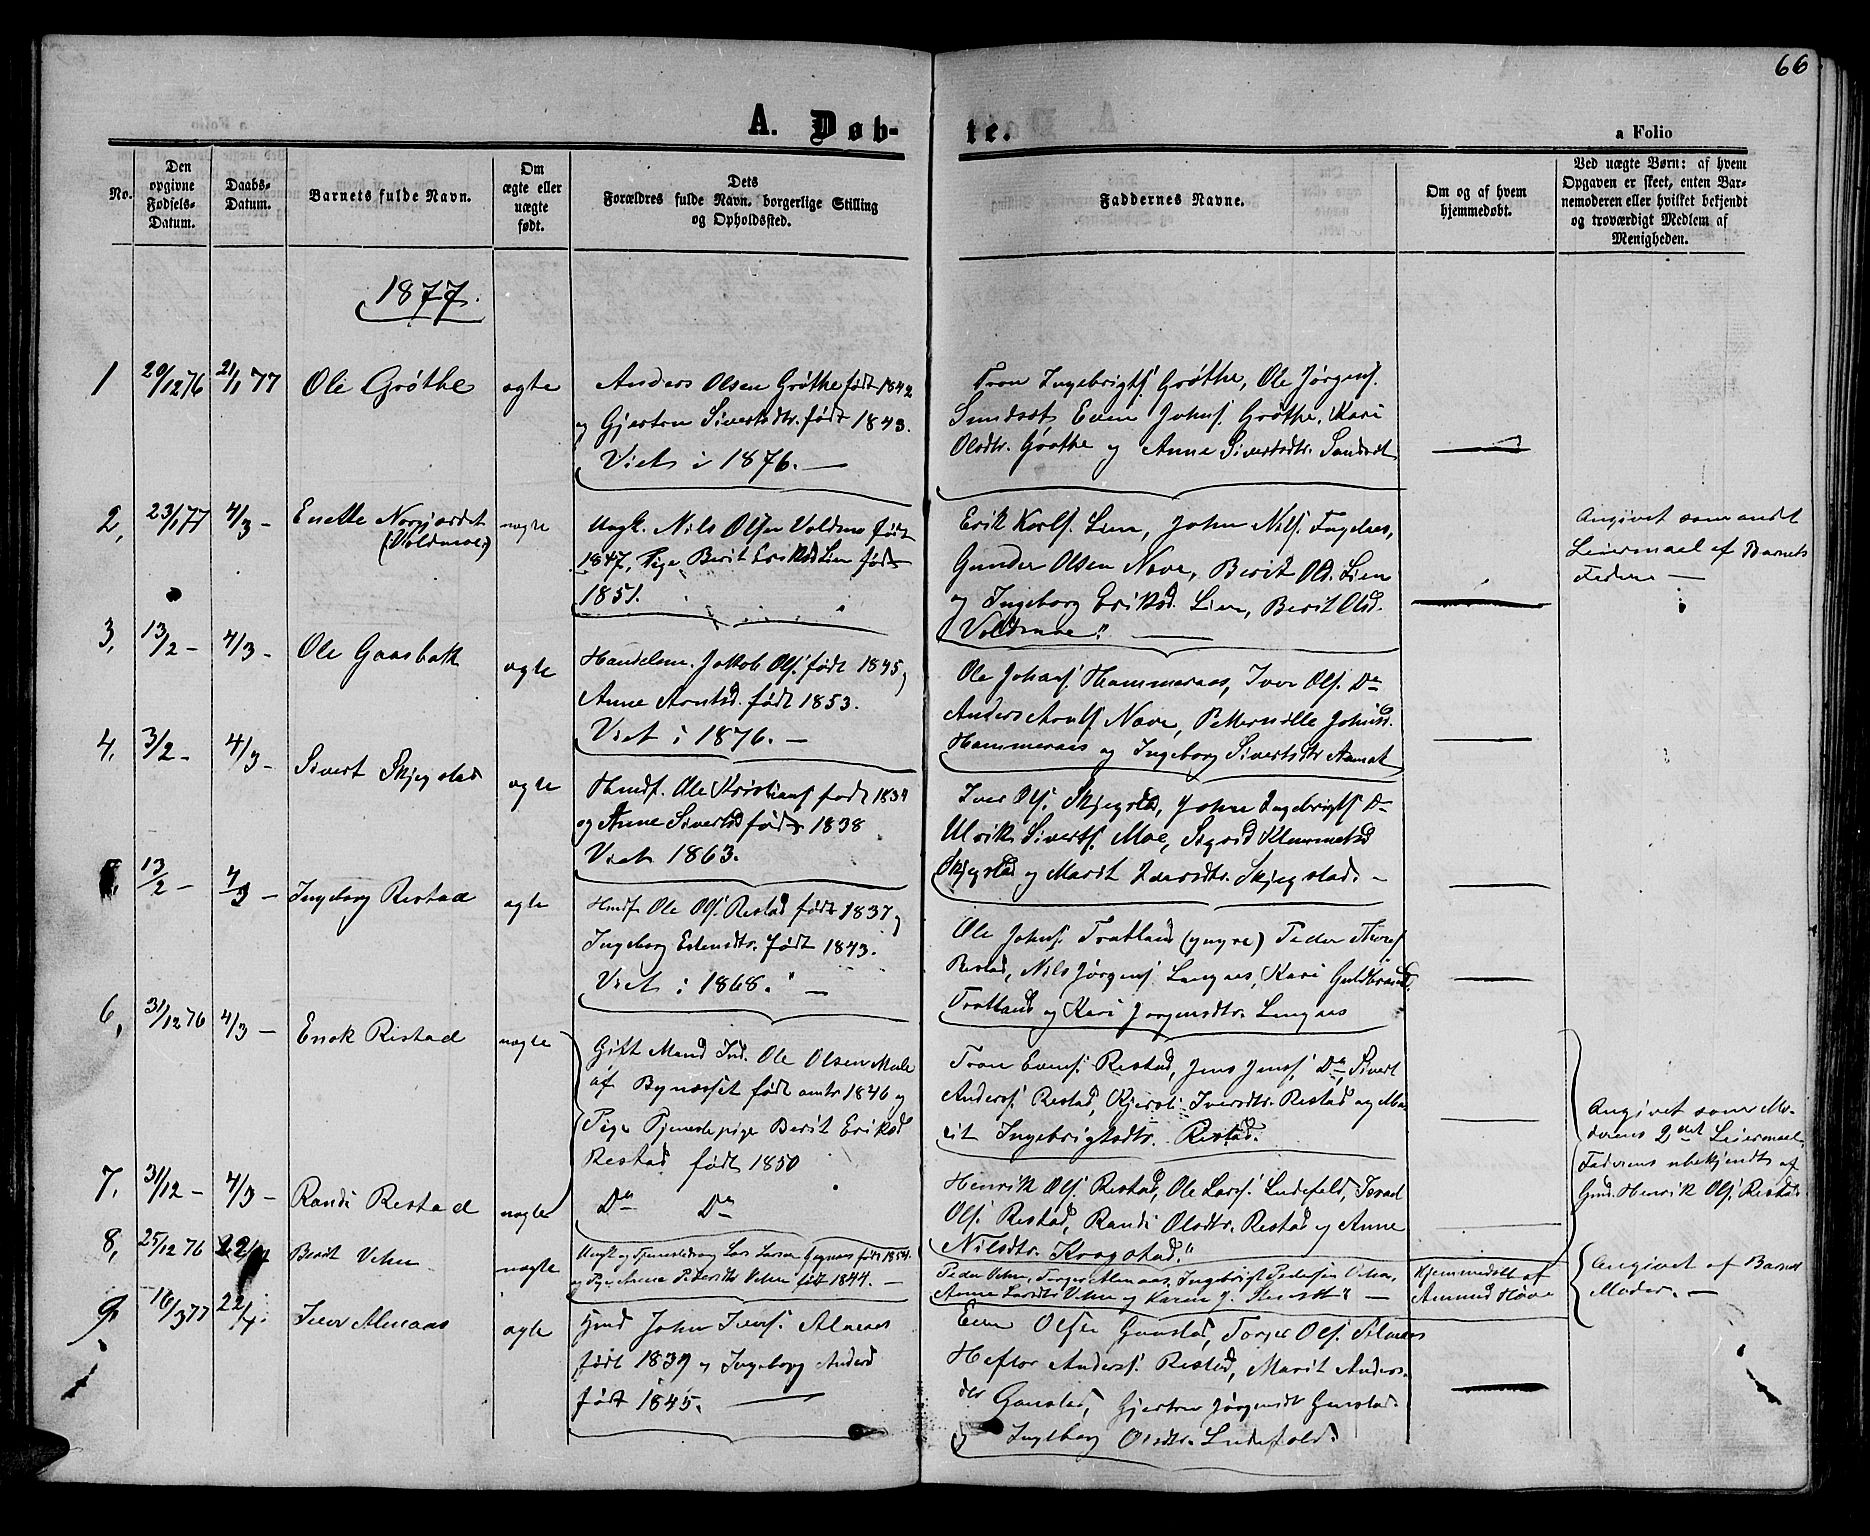 66
A. Døb-
te.
a Folio
No.
Den opgivne Fødsels-Datum.
Daabs-Datum.
Barnets fulde Navn.
Om ægte eller uægte født.
Dets Forældres fulde Navn, borgerlige Stilling og Opholdssted.
Faddernes Navne.
Om og af hvem hjemmedøbt.
Ved uægte Børn: af hvem Opgaven er skeet, enten Barnemoderen eller hvilket bekjendt og troværdigt Medlem af Menigheden.
1877.
1 20/12 76 21/1 77 Ole Grøthe ægte
Anders Olsen Grøthe født 1842
og Gjertru Sivertsdtr. født 1843.
Viet i 1876. —
Tron Ingebrigts. Grøthe, Ole Jørgens.
Sundset, Even Johns. Grøthe, Kari
Olsdtr. Grøthe og Anne Sivertsdtr. Sundset
2, 23/1 77 4/3 - Enette Norjordet (Voldmoe) uægte
Ungk. Nils Olsen Voldmo født
1847, Pige Berit Eriksd Lien født
1851.
Erik Karls. Lien, John Nils.
Gunder Olsen Nove, Berit Old. Lien
og Ingeborg Eriksd. Lien, Berit Olsd.
Voldmoe.
Angivet som andet
Leiermaal af Barnets
Fader —
3, 13/2 - 4/3 - Ole Gaasbak ægte
Handelsm. Jakob Ols. født 1845 og
Anne Arntsd. født 1853.
Viet i 1876. —
Ole Johns. Hammeraas, Iver Ols. Do
Anders Arnts Nove, Petternille Johnsd.
Hammeraas og Ingeborg Sivertsdtr Aamot
4, 3/2 - 4/3 - Sivert Skjegstad ægte
Husmd. Ole Kristians født 1834
og Anne Sivertsd født 1838
Viet 1863.
Iver Ols. Skjegstad, John Ingebrigts Do
Ulrik Siverts. Moe, Sigrid Klemmetsd
Skjegstad og Marit Iversdtr. Skjegstad. -
13/2 - 4/3 - Ingeborg Restad ægte
Ole Ols. Restad født 1837 og
Ingeborg Estensdtr. født 1843.
Viet i 1868. —
Ole Johns. Tratland (yngre) Peder
Restad, Nils Jørgens. Langaas, Kari Guldbrand
Tratland og Kari Jørgensdtr. Langaas
6, 31/12 76 4/3 - Enok Ristad uægte
Gift Mand Ind. Ole Olsen Mule
af Bynæsset født omtr 1846 og
Pige Tjenestepige Berit Eriksd
Restad født 1850
Tron Evens. Restad, Jens Jens. Do, Sivert
Anders. Restad, Kjersti Iversdtr. Restad og Ma-
rit Ingebrigtsdtr. Restad.
Angivet som Mo-
derens 2det Leiermaal,
Faderens ubekjendt af
Gmd. Henrik Ols. Restad
7, 31/12 - 4/3 - Randi Restad uægte
Do Do
Henrik Ols. Restad, Ole Lars. Ludefald,
Ols. Restad, Randi Olsdtr. Restad og Anne
Nilsdtr. Krogstad.
8, 25/12 76 22/4 Berit Vehn uægte
Ungk og Tjenestedreng Lars Larsen født 1854.
og Pige Anne Pedersdtr Vehn født 1844. —
Peder Vehn, Torger Almaas, Ingebrigt Pedersen Vehn,
Anne Larsdtr Vehn og Karen J. —
Hjemmedøbt af
Amund Hove
Angivet af Barnets
Moder. —
9. 16/3 77 22/4. Iver Almaas ægte
Gmd John Ivers. Almaas
født 1839 og Ingeborg Andersd
født 1845. —
Even Olsen Gunstad, Torger Ols. Almaas
Hefter Anders. Restad, Marit Anders-
dtr Gunstad, Gjertru Jørgensdt Gunstad
og Ingeborg Olsdtr. Ludefald.